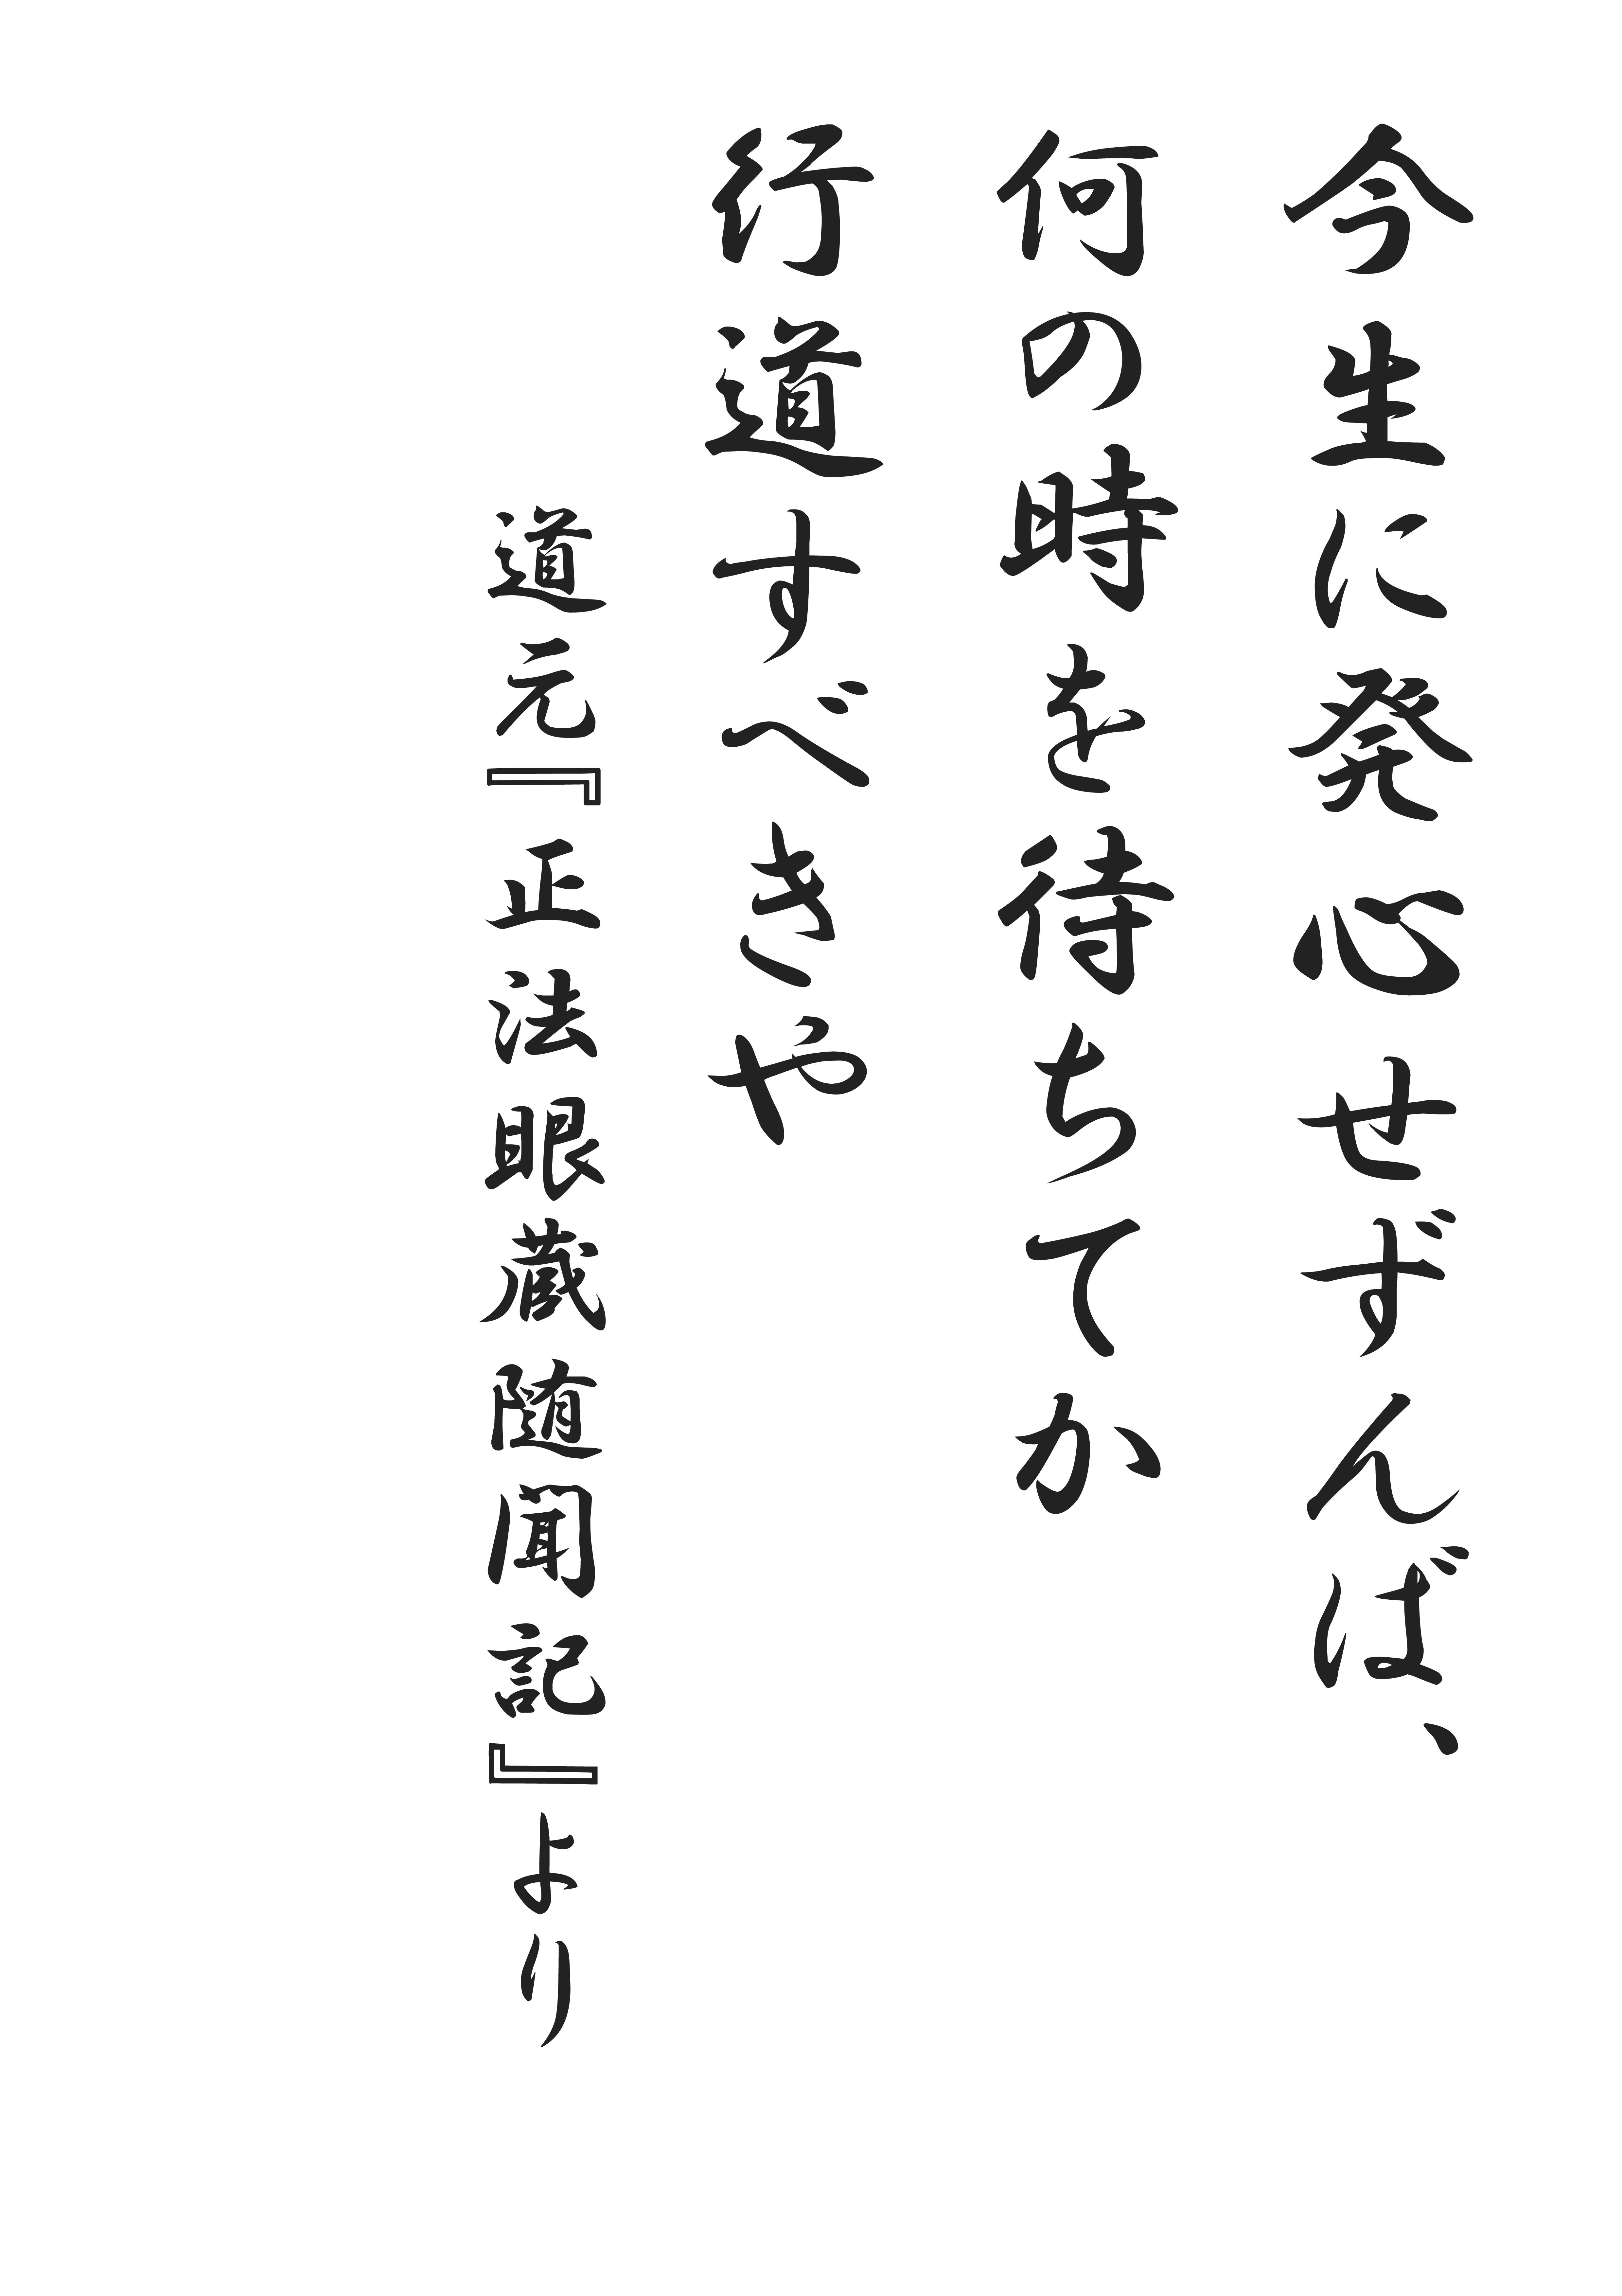 今生に発心せずんば、
何の時を待ちてか
行道すべきや
道元『正法眼蔵随聞記』より